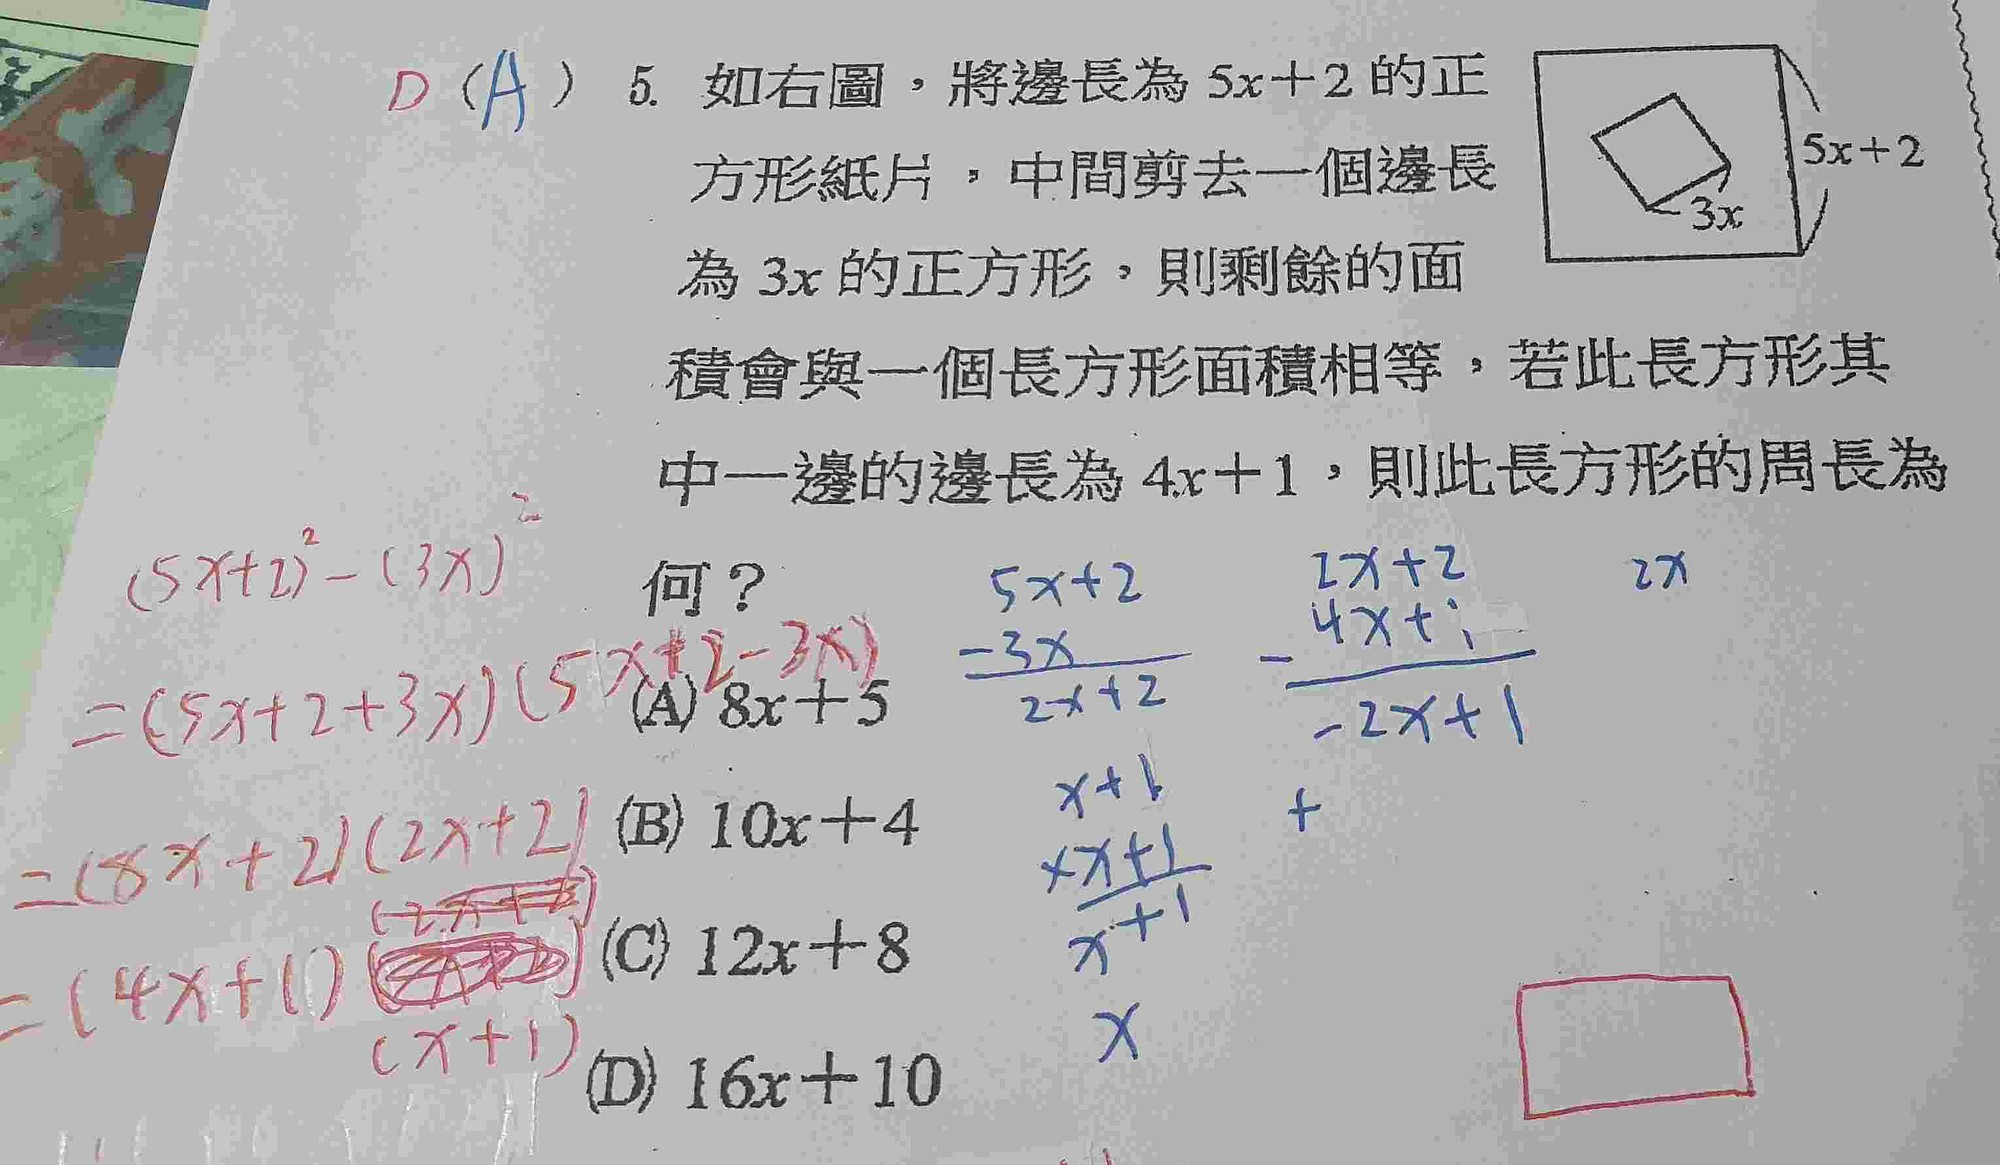 D (A) 5. 如右圖，將邊長為 5x＋2 的正
方形紙片，中間剪去一個邊長
為 3x 的正方形，則剩餘的面
積會與一個長方形面積相等，若此長方形其
中一邊的邊長為 4x＋1，則此長方形的周長為
何？
5x＋2
3x
(A) 8x＋5
(B) 10x＋4
(C) 12x＋8
(D) 16x＋10
(5x+2)² - (3x)²
= (5x+2+3x)(5x+2-3x)
= (8x+2)(2x+2)
= (4x+1)
(x+1)
5x+2
-3x
2x+2
x+1
x x+1
x+1
x
2x+2
- 4x+1
-2x+1
+
2x